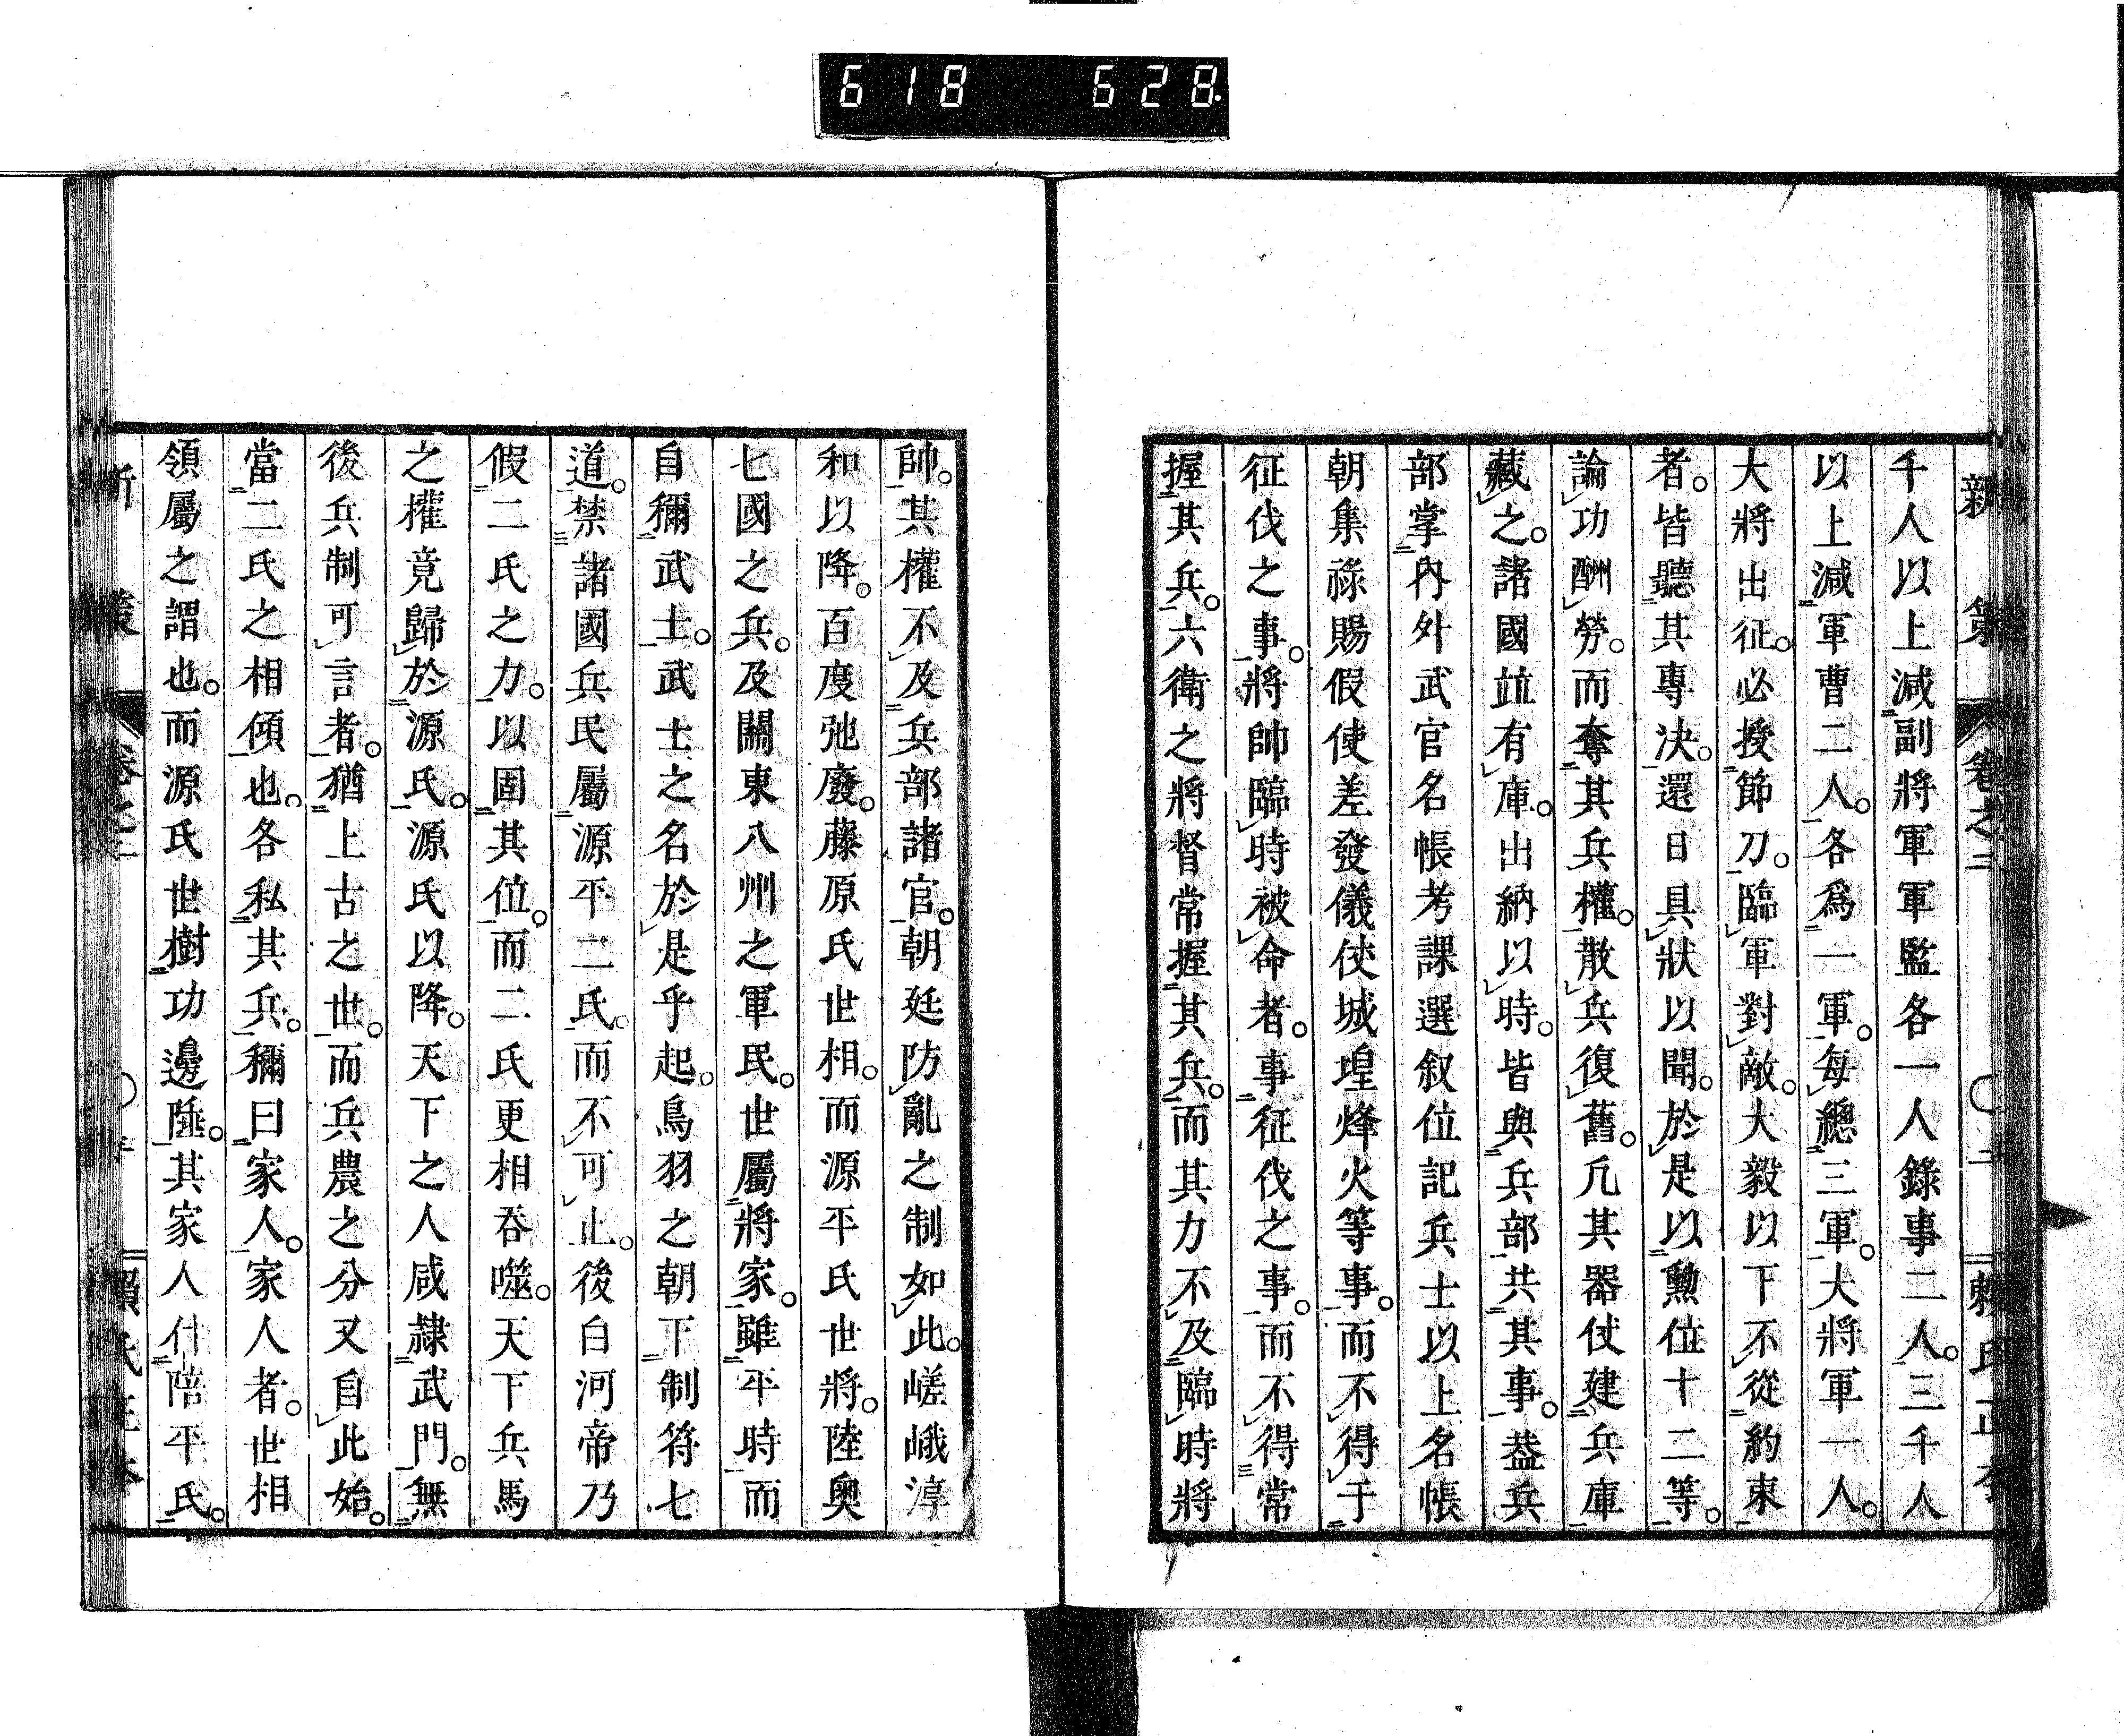 618 628
新策 卷之二 頼氏正本
千人以上減副將軍軍監各一人錄事二人。三千人
以上減軍曹二人。各爲一軍。每總三軍。大將軍一人。
大將出征。必授節刀。臨軍對敵。大毅以下不從約束
者。皆聽其專決。還日具狀以聞。於是以勲位十二等。
論功酬勞。而奪其兵權。散兵復舊。凡其器仗建兵庫
藏之。諸國竝有庫。出納以時。皆與兵部共其事。葢兵
部掌內外武官名帳考課選叙位記兵士以上名帳
朝集祿賜假使差發儀仗城隍烽火等事。而不得于
征伐之事。將帥臨時被命者。事征伐之事。而不得常
握其兵。六衛之將督常握其兵。而其力不及臨時將
帥。其權不及兵部諸官。朝廷防亂之制如此。嵯峨淳
和以降。百度弛廢。藤原氏世相。而源平氏世將。陸奧
七國之兵。及關東八州之軍民。世屬將家。雖平時而
自稱武士。武士之名於是乎起。鳥羽之朝下制符七
道。禁諸國兵民屬源平二氏。而不可止。後白河帝乃
假二氏之力。以固其位。而二氏更相吞噬。天下兵馬
之權竟歸於源氏。源氏以降。天下之人咸隷武門。無
後兵制可言者。猶上古之世。而兵農之分又自此始。
當二氏之相傾也。各私其兵。稱曰家人。家人者。世相
領屬之謂也。而源氏世樹功邊陲。其家人什陪平氏。